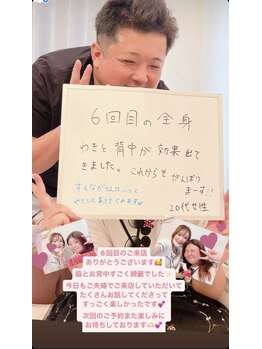 6回目の全身
わきと背中が効果出て
きました。これからもがんばり
まーす!!
20代女性
6回目のご来店
ありがとうございます🥰
脇とお背中すごく綺麗でした✨
今日もご夫婦でご来店していただいて
たくさんお話してくださって
すっごく楽しかったです💕
次回のご予約また楽しみに
お待ちしております🫶🏻💕